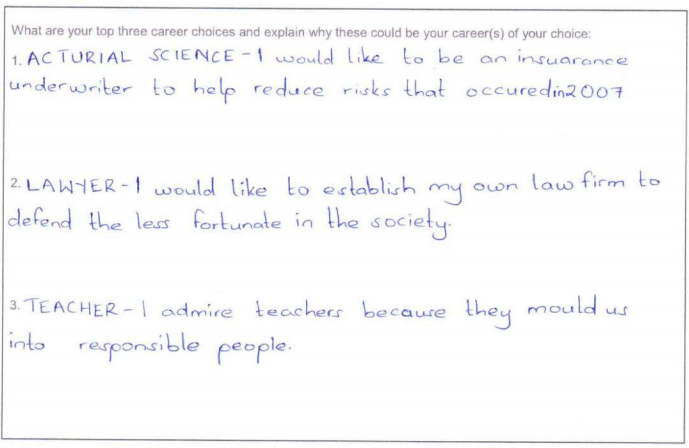 What are your top three career choices and explain why these could be your career(s) of your choice:
1. ACTURIAL SCIENCE - I would like to be an insuarance
underwriter to help reduce risks that occuredin2007
2. LAWYER - I would like to establish my own law firm to
defend the less fortunate in the society.
3. TEACHER - I admire teachers because they mould us
into responsible people.